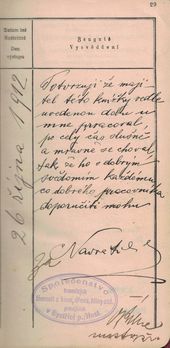 29
Datum des
Austrittes
Den
výstupu
Zeugnis
Vysvědčení
26 října 1912
Potvrzuji že maji-
tel této knížky vedle
uvedenou dobu u
mne pracoval,
po celý čas slušně
a mravně se choval
tak že ho s dobrým
svědomím každému
co dobrého pracovníka
doporučiti mohu
Navrátil
Společenstvo
v Bystřici p. Host.